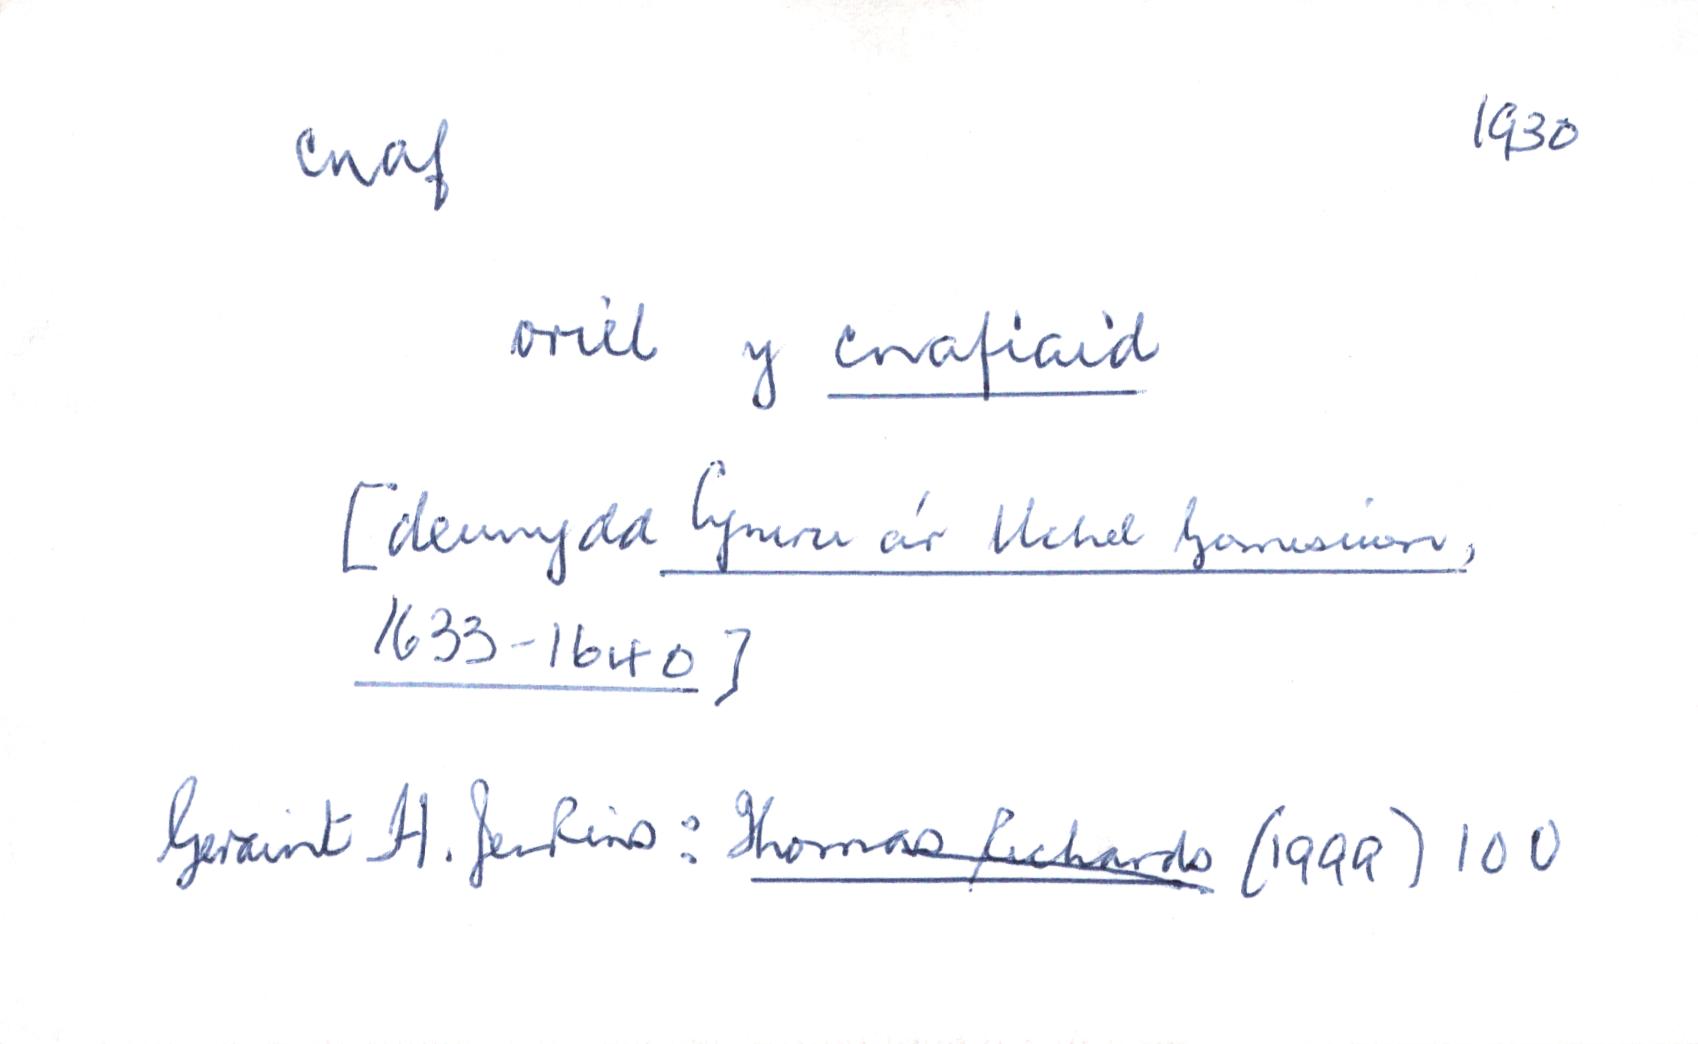 cnaf 1930
oriel y cnafiaid
[deunydd Cymru a'r Uchel Gomisiwn,
1633-1640]
Geraint H. Jenkins: Thomas Richards (1999) 100